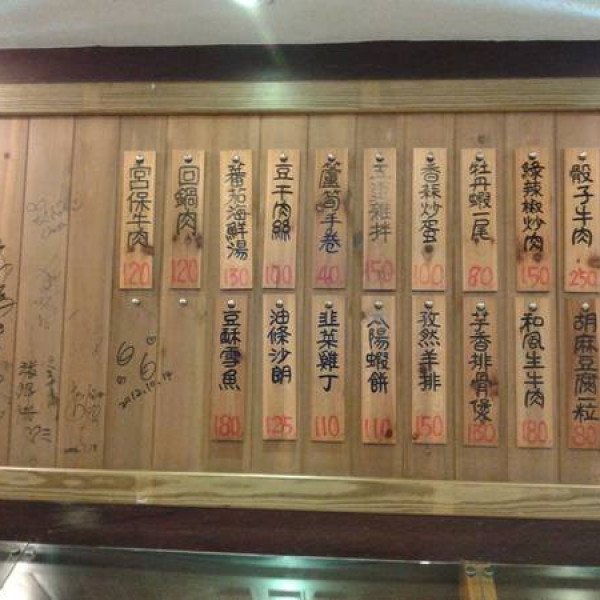 骰子牛肉
250
綠辣椒炒肉
150
牡丹蝦一尾
80
香蒜炒蛋
100
150
蘆筍手卷
40
豆干肉絲
100
蕃茄海鮮湯
130
回鍋肉
120
宮保牛肉
120
胡麻豆腐一粒
80
和風生牛肉
180
芋香排骨煲
130
孜然羊排
150
太陽蝦餅
110
韭菜雞丁
110
油條沙朗
125
豆酥雪魚
180
2012.10.14